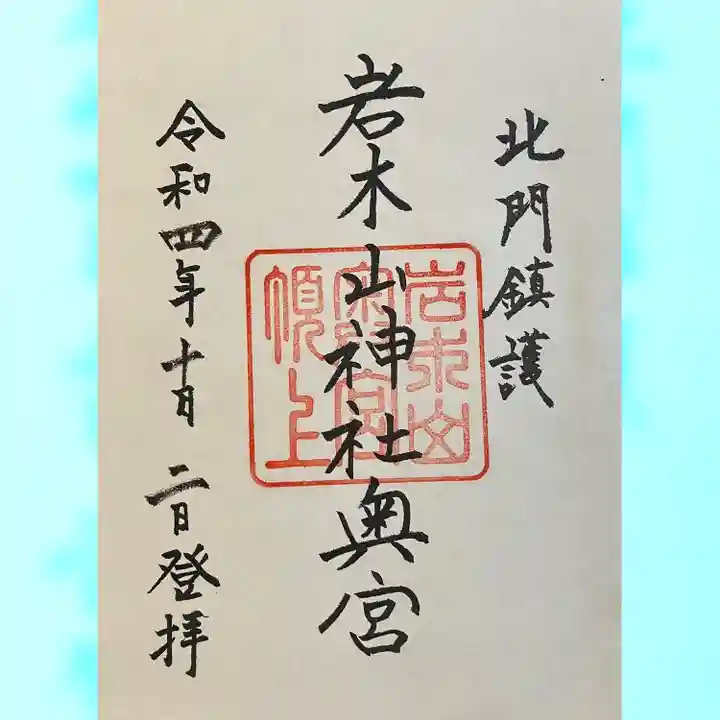 北門鎮護
岩木山神社奥宮
岩木山
奥宮
頂上
令和四年十月二日登拝